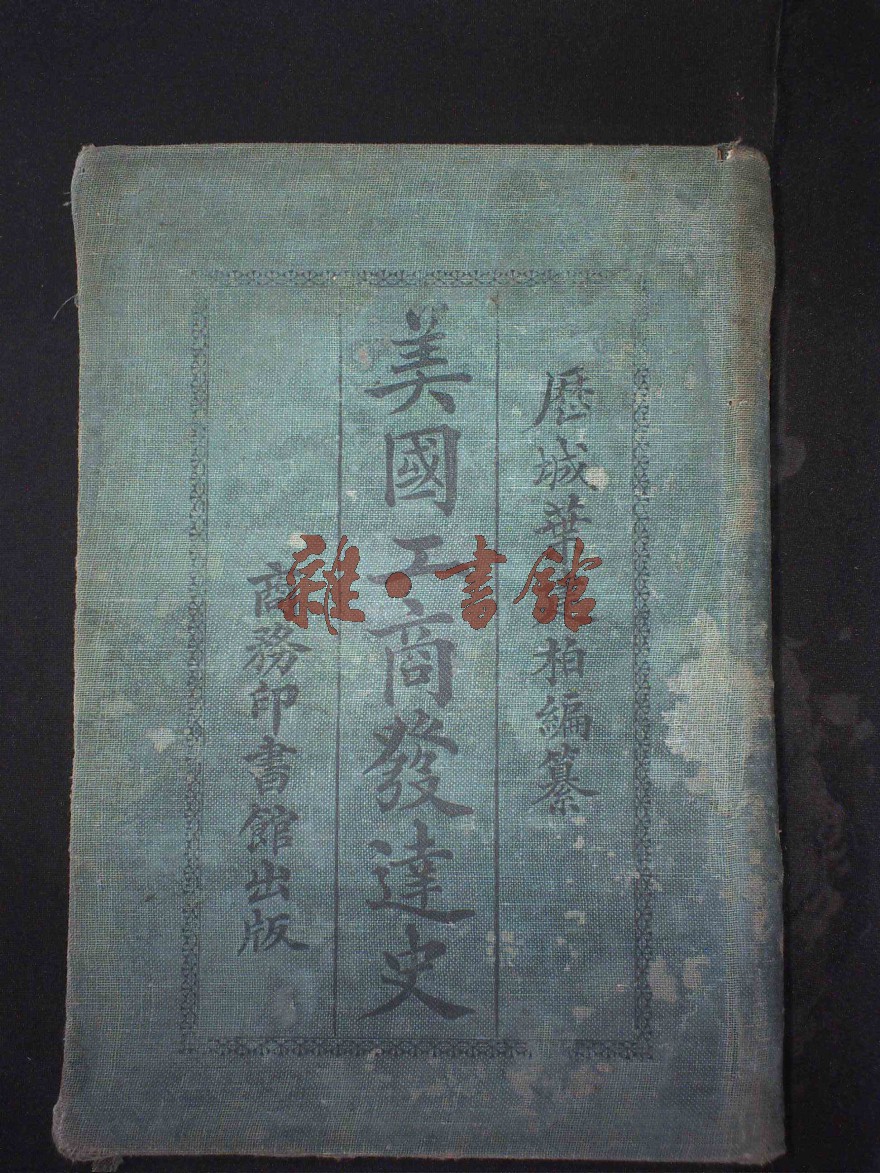 歷城葉柏編纂
美國工商發達史
商務印書館出版
雜·書館